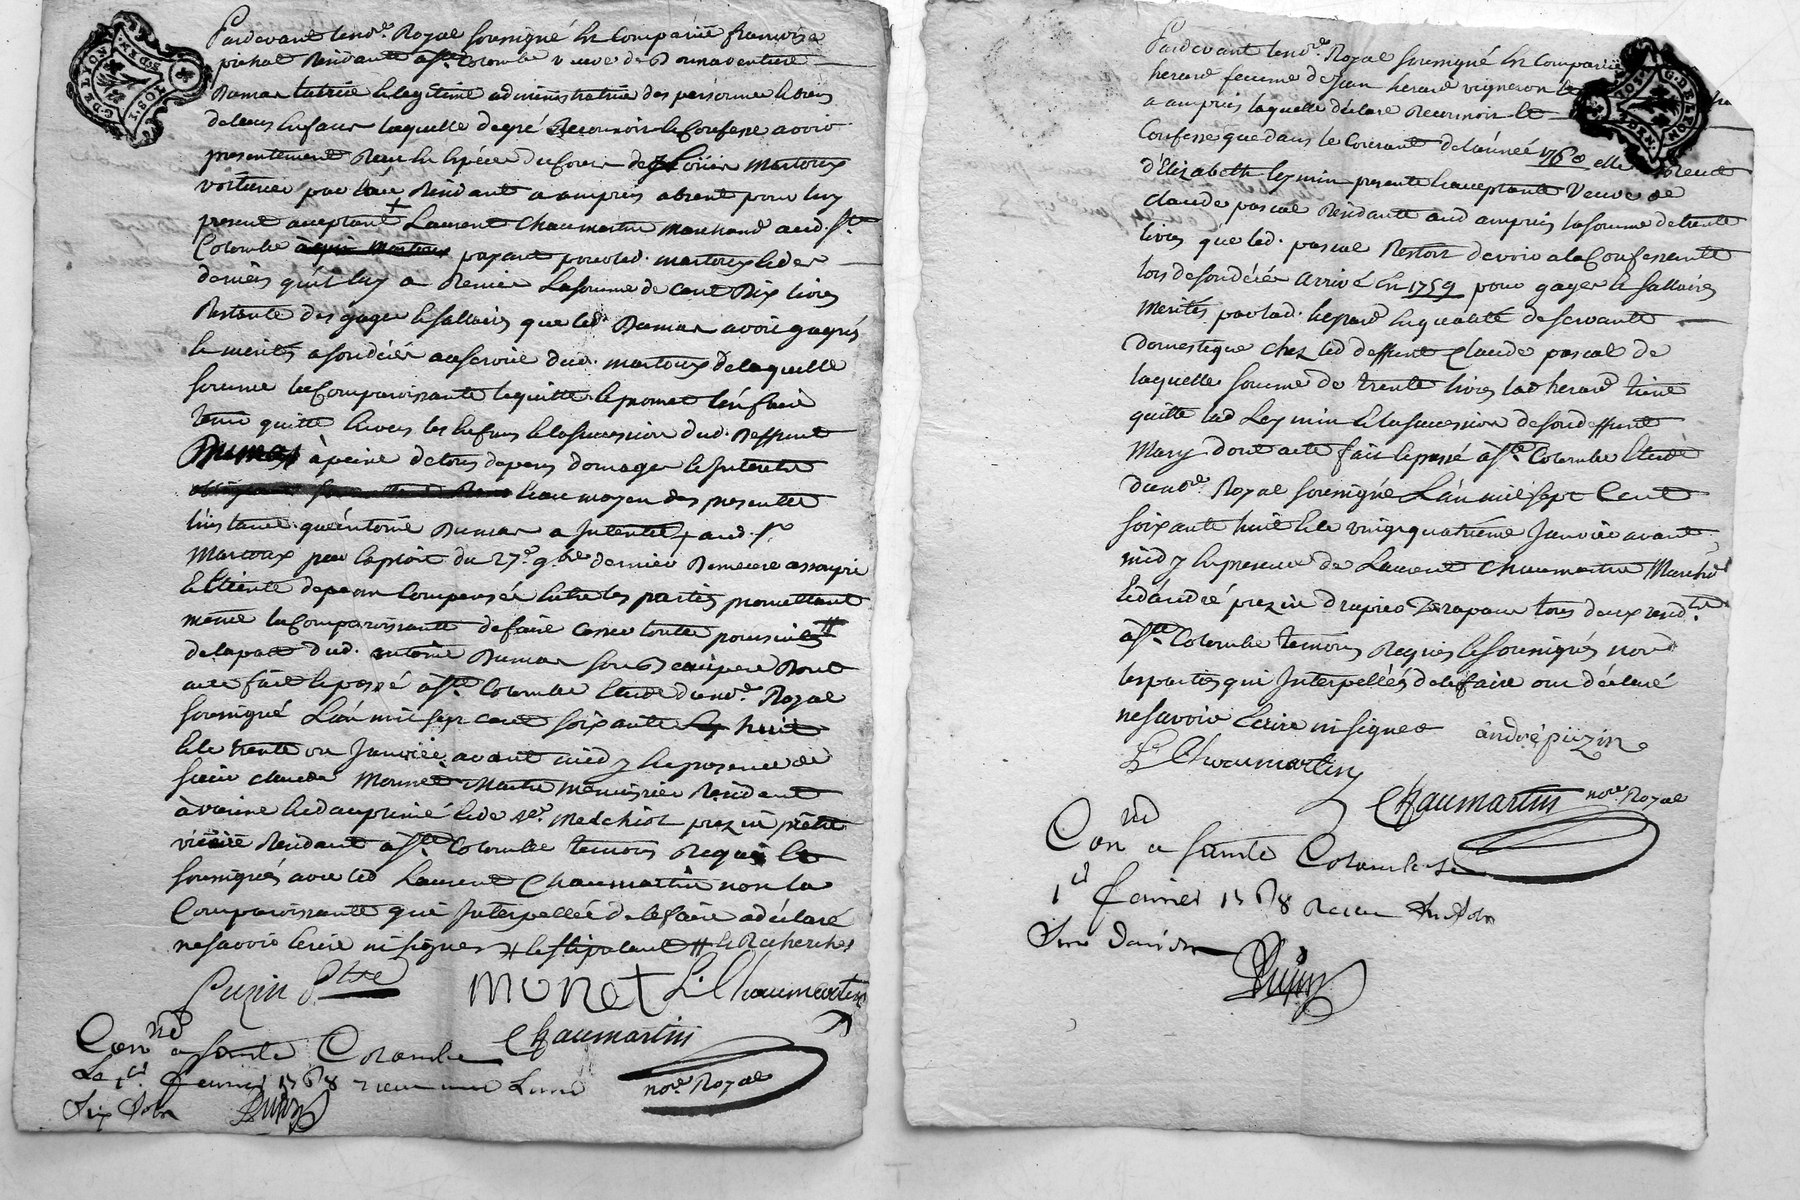 Pardevant le no.re Royal soussigné est comparüe françoise
prehat Residante à S.te Colombe veuve de Bonnaventure
Dumas tutrice et legitime administratrice des personnes et biens
de leurs enfans laquelle de gré Reconnoit et Confesse avoir
presentement Receu en espece du cours de Martoux
voiturier par eau Residant a ampuis absent pour luy
present acceptant + Laurent Chaumartin Marchand aud. S.te
Colombe payant pour led. martoux et des
deniers qu'il luy a Remis La somme de Cent dix livres
Restante des gages et sallaires que led. Dumas avoit gagnés
et merités a son décés au service dud. martoux de laquelle
somme la Comparoissante le quitte et promet l'en faire
tenir quitte envers les enfans et la succession dud. deffunt
Dumas à peine de tous depens domages et interets
et au moyen des presentes
l'instance qu'antoine Dumas a intentée aud. S.r
Martoux par exploit du 27.e 9.bre dernier Demeure assoupie
et éteinte depens Compensés entre les parties promettant
même la Comparoissante de faire cesser toutes poursuittes #
de la part dud. antoine Dumas son Beaupere Dont
acte fait et passé à S.te Colombe etude du no.re Royal
soussigné L'an mil sept cent soixante huit
et le trente un Janvier avant midy en presence de
sieur claude Monnet Maitre menuisier Residant
à vienne en dauphiné et de M.re Melchior prezin prêtre
vicaire Residant à S.te Colombe temoins Requis et
soussignés avec led. Laurent Chaumartin non la
Comparoissante qui Interpellée de le faire a déclaré
ne savoir ecrire ni signer + et stipulant # et Recherches
Puzin p.tre monet L. Chaumartin
Chaumartin
no.re Royal
Con.lé a sainte Colombe
Le 1.er fevrier 1768 Receu une Livre
six sols

Pardevant le no.re Royal soussigné est Comparüe
herard femme de Jean herard vigneron
a ampuis laquelle déclare Reconnoit et
Confesse que dans le Courant de l'année 1760 elle a Receu
d'Elizabeth leymin presente et acceptante Veuve de
claude pascal Residante aud. ampuis la somme de trente
livres que led. pascal Restoit devoir a la Confessante
lors de son décés arrivé en 1759 pour gages et sallaires
merités par lad. herard en qualité de servante
domestique chez led. deffunt Claude pascal de
laquelle somme de trente livres lad. herard tient
quitte lad. Leymin et la succession de son deffunt
Mary dont acte fait et passé à S.te Colombe etude
du no.re Royal soussigné L'an mil sept Cent
soixante huit et le vingt quatrieme Janvier avant
midy en presence de Laurent Chaumartin Marchand
et d'andré prezin drapier Drapans tous deux resid.ts
à S.te Colombe temoins Requis et soussignés non
les parties qui Interpellées de le faire ont déclaré
ne savoir Ecrire ni signer andré püzin
L. Chaumartin
Chaumartin no.re Royal
Con.lé a sainte Colombe le
1.er fevrier 1768 Receu six sols